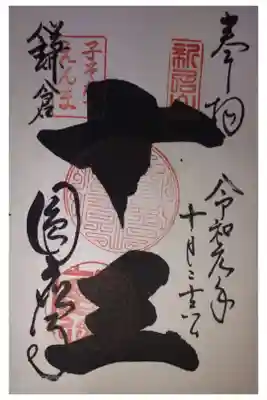 奉拝
令和元年
十月二十六日
十王
鎌倉
圓應寺
子そだて
えんま
新居山